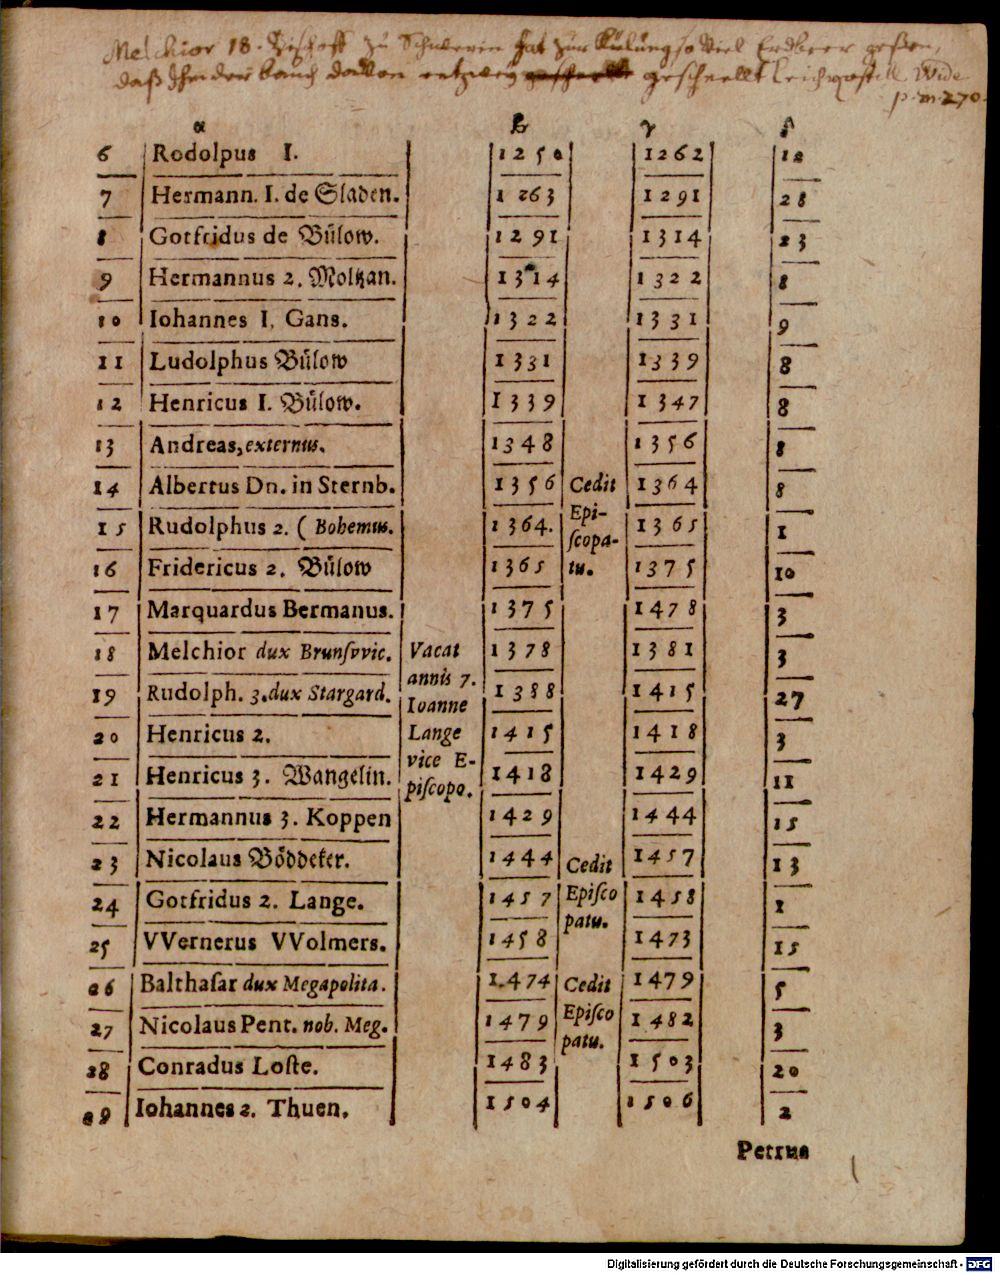 Melchior 18. Bischoff zu Schwerin hat zur Külung so viel Erdbeer geßen,
daß Ihm der bauch davon entzwey geschnellt Leichpostill Wide
p. m. 270.
α β γ δ
6 Rodolpus I. 1250 1262 12
7 Hermann. I. de Sladen. 1263 1291 28
8 Gotfridus de Bülow. 1291 1314 23
9 Hermannus 2. Moltzan. 1314 1322 8
10 Iohannes I, Gans. 1322 1331 9
11 Ludolphus Bülow 1331 1339 8
12 Henricus I. Bülow. 1339 1347 8
13 Andreas, externus. 1348 1356 8
14 Albertus Dn. in Sternb. 1356 Cedit 1364 8
15 Rudolphus 2. ( Bohemus. 1364. Epi-ſcopa- 1365 1
16 Fridericus 2. Bülow 1365 tu. 1375 10
17 Marquardus Bermanus. 1375 1478 3
18 Melchior dux Brunſvvic. Vacat 1378 1381 3
19 Rudolph. 3. dux Stargard. annis 7. Ioanne 1388 1415 27
20 Henricus 2. Lange 1415 1418 3
21 Henricus 3. Wangelin. vice E-piſcopo. 1418 1429 11
22 Hermannus 3. Koppen 1429 1444 15
23 Nicolaus Böddeker. 1444 Cedit 1457 13
24 Gotfridus 2. Lange. 1457 Epiſco 1458 1
25 VVernerus VVolmers. 1458 patu. 1473 15
26 Balthaſar dux Megapolita. 1474 Cedit 1479 5
27 Nicolaus Pent. nob. Meg. 1479 Epiſco patu. 1482 3
28 Conradus Loſte. 1483 1503 20
29 Iohannes 2. Thuen. 1504 1506 2
Petrus
Digitalisierung gefördert durch die Deutsche Forschungsgemeinschaft - DFG